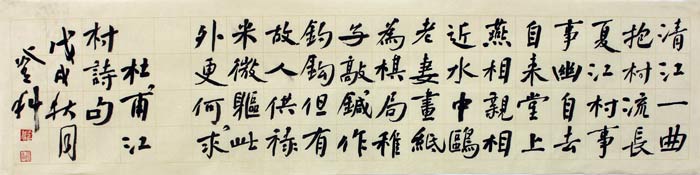 清江一曲
抱村流長
夏江村事
事幽自去
自来堂上
燕相親相
近水中鷗
老妻畫紙
為棋局稚
子敲鍼作
釣鈎但有
故人供禄
米微軀此
外更何求
杜甫江
村詩句
戊戌秋月
登科